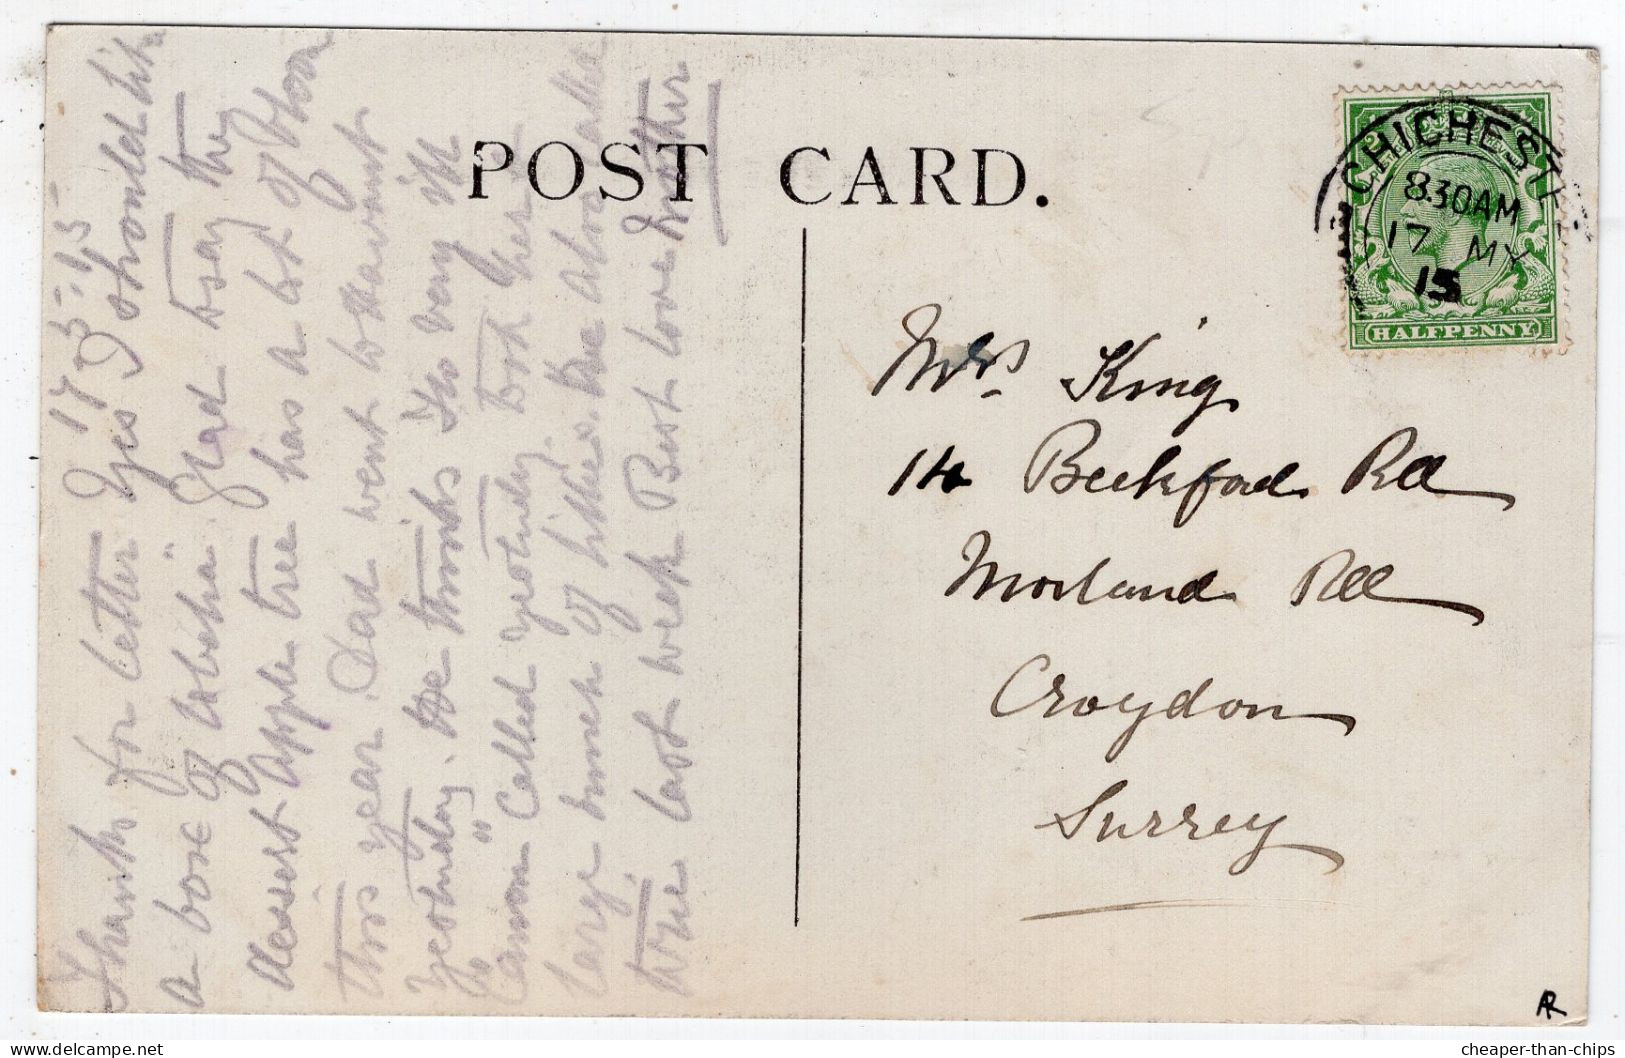 17-5-15
Thanks for letter Yes I should like
a box of lobelia. Glad to say the
dessert apple tree has a lot of bloom
this year. Dad went to
yesterday. He thinks is very ill
so Canon Called yesterday took her
large bunch of lillies. We also
wire last week Best love Mother
POST CARD.
CHICHESTE
8.30AM
17 MY
15
HALFPENNY
Mrs King
14 Beckford Rd
Morland Rd
Croydon
Surrey
AR
delcampe.net
cheaper-than-chips